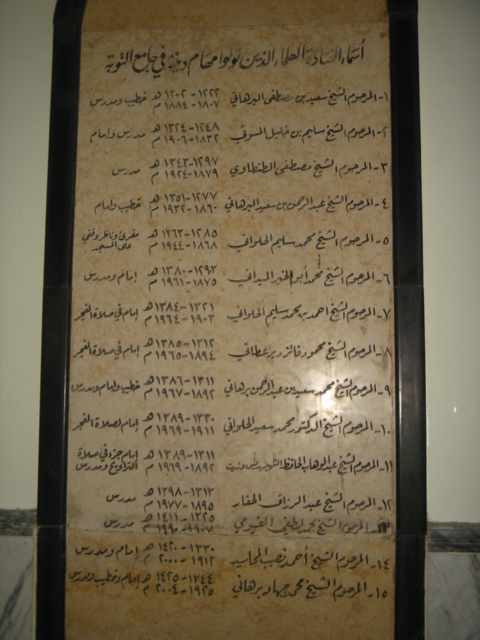 أسماء السادة العلماء الذين تولوا مهام دينية في جامع التوبة
١- المرحوم الشيخ سعيد بن مصطفى البرهاني ١٢٢٢-١٣٠٢ هـ ١٨٠٧-١٨٨٤ م خطيب ومدرس
٢- المرحوم الشيخ سليم بن خليل المسوتي ١٢٤٨-١٣٢٤ هـ ١٨٣٢-١٩٠٦ م مدرس وامام
٣- المرحوم الشيخ مصطفى الطنطاوي ١٢٩٧-١٣٤٣ هـ ١٨٧٩-١٩٢٤ م مدرس
٤- المرحوم الشيخ عبد الرحمن بن سعيد البرهاني ١٢٧٧-١٣٥١ هـ ١٨٦٠-١٩٣٢ م خطيب وامام
٥- المرحوم الشيخ محمد سليم الحلواني ١٢٨٥-١٣٦٣ هـ ١٨٦٨-١٩٤٤ م مقرئ وناظر وقفي على المسجد
٦- المرحوم الشيخ محمد أبو الخير الميداني ١٢٩٣-١٣٨٠ هـ ١٨٧٥-١٩٦١ م امام ومدرس
٧- المرحوم الشيخ احمد بن محمد سليم الحلواني ١٣٢١-١٣٨٤ هـ ١٩٠٣-١٩٦٤ م إمام في صلاة الفجر
٨- المرحوم الشيخ محمود فائز ديرعطاني ١٣١٢-١٣٨٥ هـ ١٨٩٤-١٩٦٥ م إمام في صلاة الفجر
٩- المرحوم الشيخ محمد سعيد بن عبد الرحمن برهاني ١٣١١-١٣٨٦ هـ ١٨٩٢-١٩٦٧ م خطيب وامام ومدرس
١٠- المرحوم الشيخ الدكتور محمد سعيد الحلواني ١٣٣٠-١٣٨٩ هـ ١٩١١-١٩٦٩ م إمام لصلاة الفجر
١١- المرحوم الشيخ عبد الوهاب الحافظ الشهير بدبس وزيت ١٣١١-١٣٨٩ هـ ١٨٩٢-١٩٦٩ م إمام جزء في صلاة التراويح ومدرس
١٢- المرحوم الشيخ عبد الرزاق الحفار ١٣١٣-١٣٩٨ هـ ١٨٩٥-١٩٧٧ م مدرس
المرحوم الشيخ محمد لطفي الفيومي ١٣٢٥-١٤١١ هـ ١٩٠٧-١٩٩٠ م مدرس
١٤- المرحوم الشيخ أحمد نصيب المحاميد ١٣٣٠-١٤٢٠ هـ ١٩١٢-٢٠٠٠ م إمام ومدرس
١٥- المرحوم الشيخ محمد جهاد برهاني ١٣٤٤-١٤٢٥ هـ ١٩٢٥-٢٠٠٤ م إمام وخطيب ومدرس